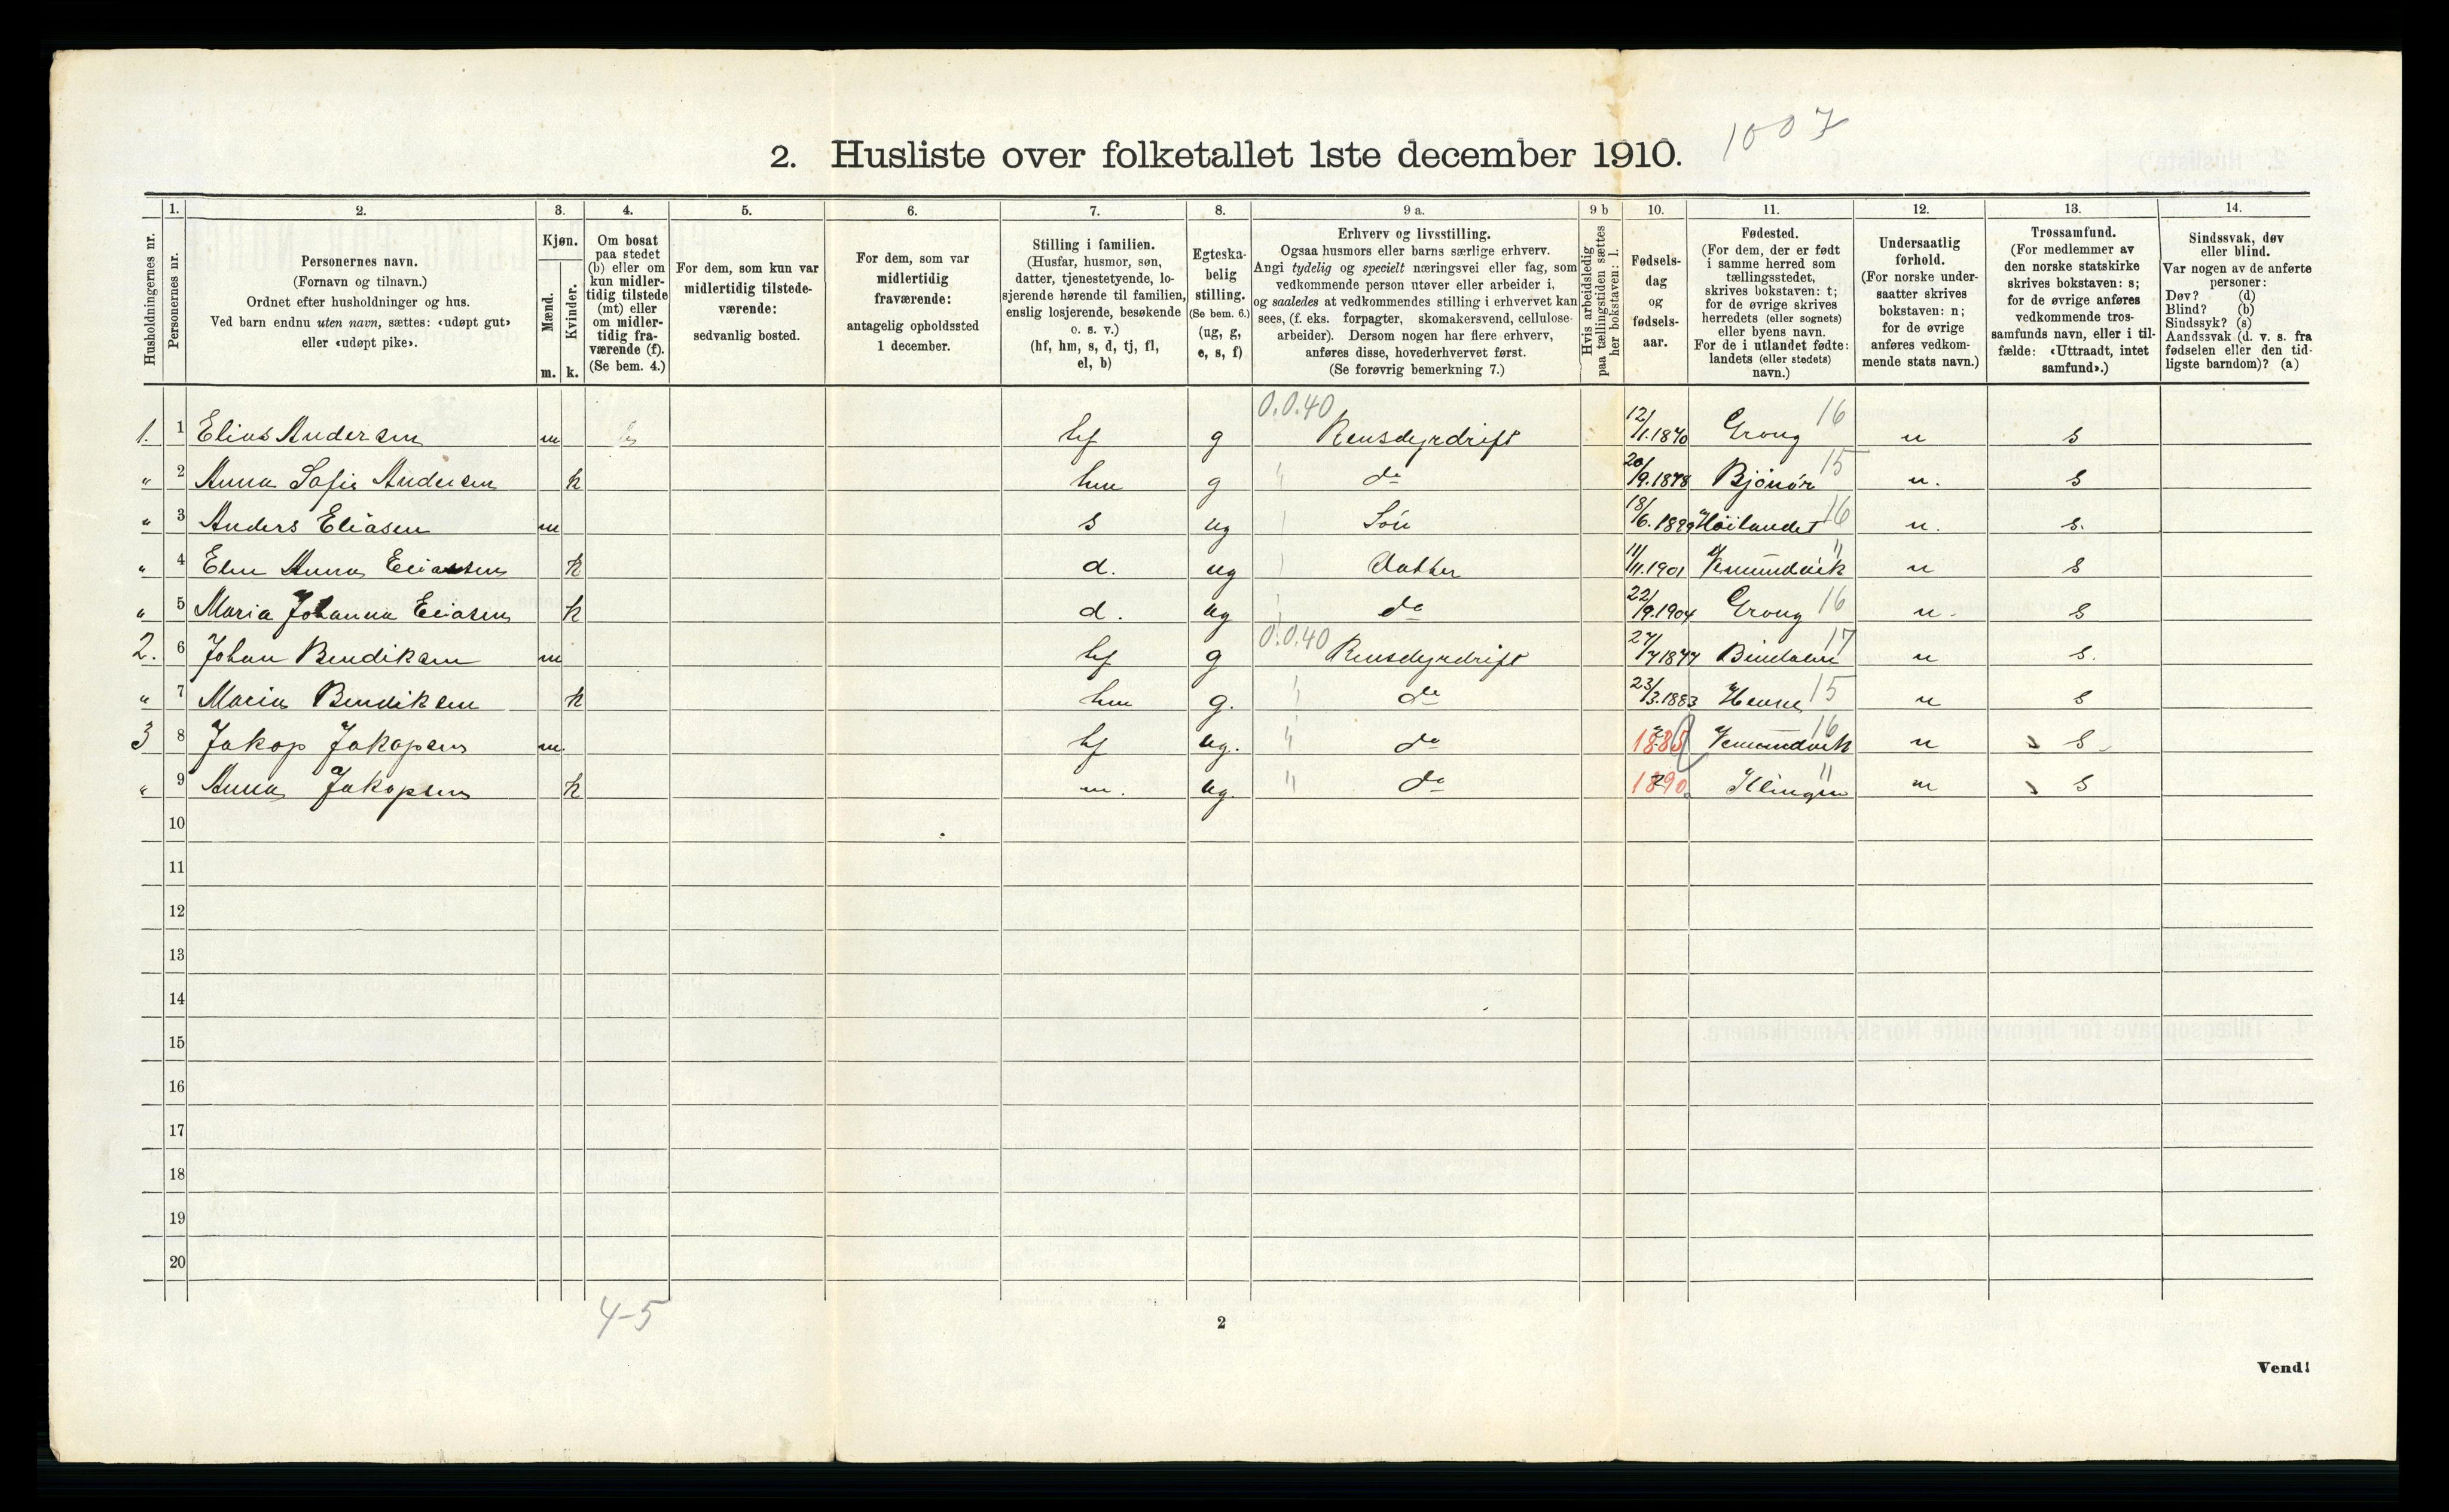 1007
2. Husliste over folketallet 1ste december 1910.
Husholdningernes nr.
1. Personernes nr.
2. Personernes navn.
(Fornavn og tilnavn.)
Ordnet efter husholdninger og hus.
Ved barn endnu uten navn, sættes: «udøpt gut»
eller «udøpt pike».
3. Kjøn.
Mænd. m.
Kvinder. k.
4. Om bosat
paa stedet
(b) eller om
kun midler-
tidig tilstede
(mt) eller
om midler-
tidig fra-
værende (f).
(Se bem. 4.)
5. For dem, som kun var
midlertidig tilstede-
værende:
sedvanlig bosted.
6. For dem, som var
midlertidig
fraværende:
antagelig opholdssted
1 december.
7. Stilling i familien.
(Husfar, husmor, søn,
datter, tjenestetyende, lo-
sjerende hørende til familien,
enslig losjerende, besøkende
o. s. v.)
(hf, hm, s, d, tj, fl,
el, b)
8. Egteska-
belig
stilling.
(Se bem. 6.)
(ug, g,
e, s, f)
9 a. Erhverv og livsstilling.
Ogsaa husmors eller barns særlige erhverv.
Angi tydelig og specielt næringsvei eller fag, som
vedkommende person utøver eller arbeider i,
og saaledes at vedkommendes stilling i erhvervet kan
sees, (f. eks. forpagter, skomakersvend, cellulose-
arbeider). Dersom nogen har flere erhverv,
anføres disse, hovederhvervet først.
(Se forøvrig bemerkning 7.)
9 b Hvis arbeidsledig
paa tællingstiden sættes
her bokstaven: l.
10. Fødsels-
dag
og
fødsels-
aar.
11. Fødested.
(For dem, der er født
i samme herred som
tællingsstedet,
skrives bokstaven: t;
for de øvrige skrives
herredets (eller sognets)
eller byens navn.
For de i utlandet fødte:
landets (eller stedets)
navn.)
12. Undersaatlig
forhold.
(For norske under-
saatter skrives
bokstaven: n;
for de øvrige
anføres vedkom-
mende stats navn.)
13. Trossamfund.
(For medlemmer av
den norske statskirke
skrives bokstaven: s;
for de øvrige anføres
vedkommende tros-
samfunds navn, eller i til-
fælde: «Uttraadt, intet
samfund».)
14. Sindssvak, døv
eller blind.
Var nogen av de anførte
personer:
Døv? (d)
Blind? (b)
Sindssyk? (s)
Aandssvak (d. v. s. fra
fødselen eller den tid-
ligste barndom)? (a)
1. 1 Elias Andersen m hf g 0.0.40 Rensdyrdrift 12/1.1870 Grong 16 n s
" 2 Anna Sofie Andersen k hm g " do 20/9.1878 Bjönör 15 n. s
" 3 Anders Eliasen m s ug Sön 18/6.1899 Höilandet 16 n. s.
" 4 Elen Anna Eliassen k d. ug Datter 11/11.1901 Vemundvik " n s
" 5 Maria Johanna Eliasen k d. ug do 22/9.1904 Grong 16 n. s
2. 6 Johan Bendiksen m hf g 0.0.40 Rensdyrdrift 27/7 1877 Bindalen 17 n s.
" 7 Maria Bendiksen k hm g. " do 23/3.1883 Hevne 15 n s
3 8 Jakop Jakopsen m. hf ug. " do 1885 Vemundvik 16 n s
" 9 Anna Jakopsen k m. ug. " do 1890 Klingen " n s
10
11
12
13
14
15
16
17
18
19
20
4-5
2
Vend!